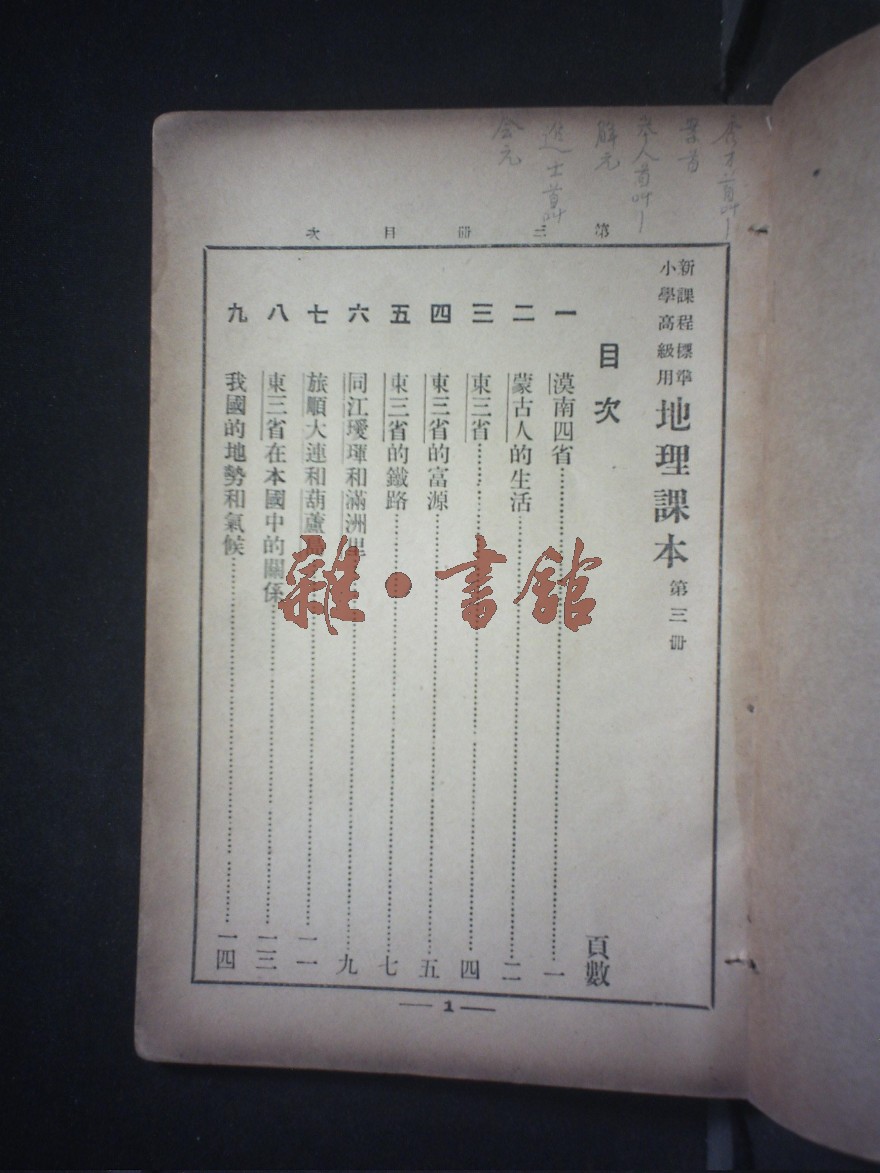 第三冊目次
新課程標準
小學高級用
地理課本 第三冊
目次
頁數
一 漠南四省 一
二 蒙古人的生活 二
三 東三省 四
四 東三省的富源 五
五 東三省的鐵路 七
六 同江璦琿和滿洲里 九
七 旅順大連和葫蘆島 一一
八 東三省在本國中的關係 一三
九 我國的地勢和氣候 一四
1
雜·書館
秀才首叫
案首
举人首叫
解元
進士首叫
会元